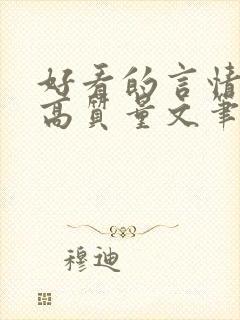 好看的言情
高质量文笔
穆迪